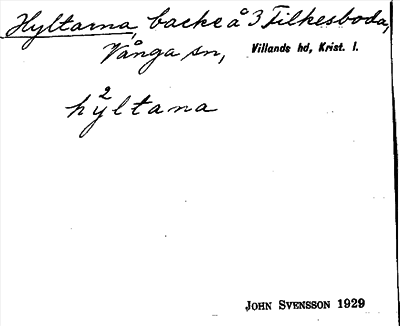 Hyltarna, backe å 3 Filkesboda,
Vånga sn, Villands hd, Krist. l.
hy²ltana
JOHN SVENSSON 1929